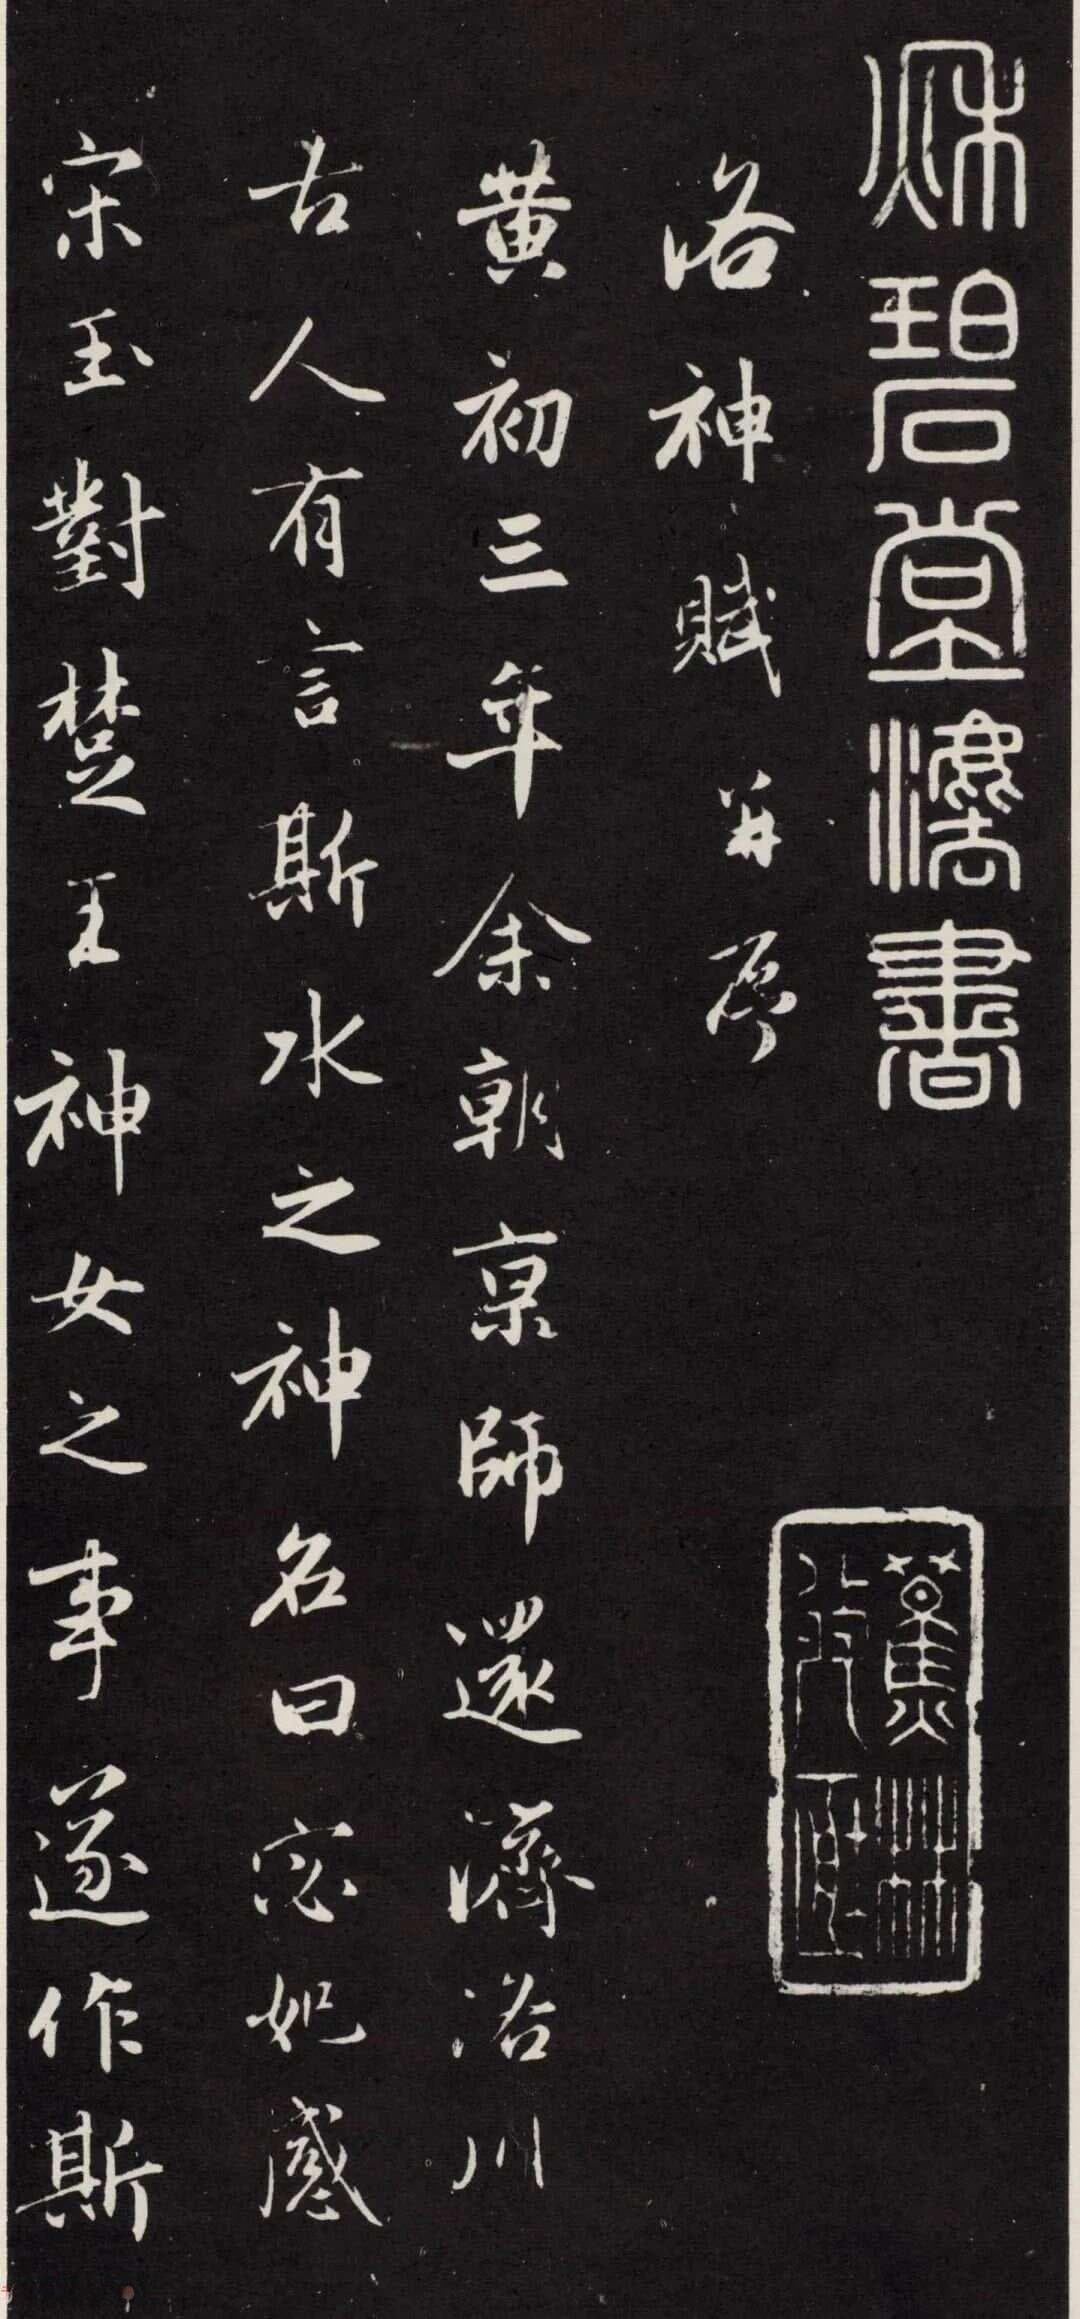 秋碧堂法書
洛神賦并序
黃初三年余朝京師還濟洛川
古人有言斯水之神名曰宓妃感
宋玉對楚王神女之事遂作斯
蕉林